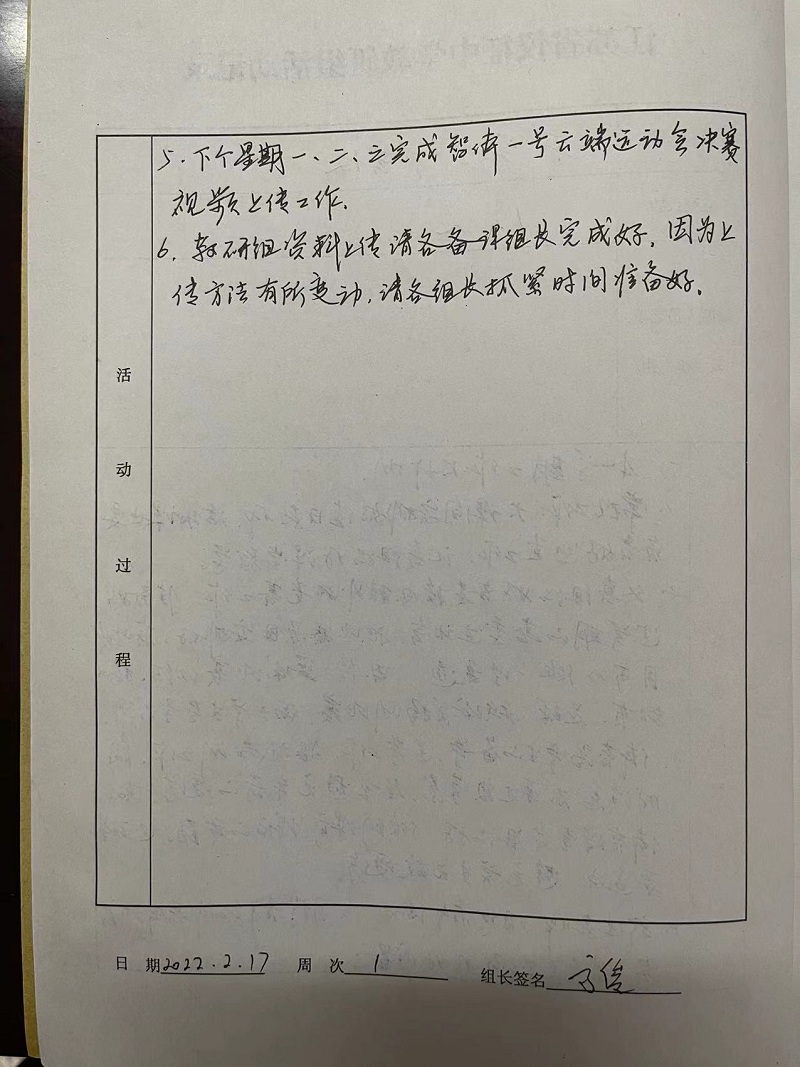 5.下个星期一、二、三完成智体一号云端运动会决赛
视频上传工作.
6.教研组资料上传请各备课组长完成好,因为上
传方法有所变动,请各组长抓紧时间准备好.
活
动
过
程
日 期2022.2.17 周 次 1 组长签名 方俊